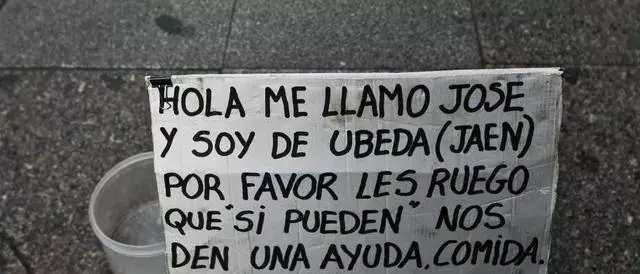 HOLA ME LLAMO JOSE
Y SOY DE UBEDA (JAEN)
POR FAVOR LES RUEGO
QUE "SI PUEDEN" NOS
DEN UNA AYUDA. COMIDA.